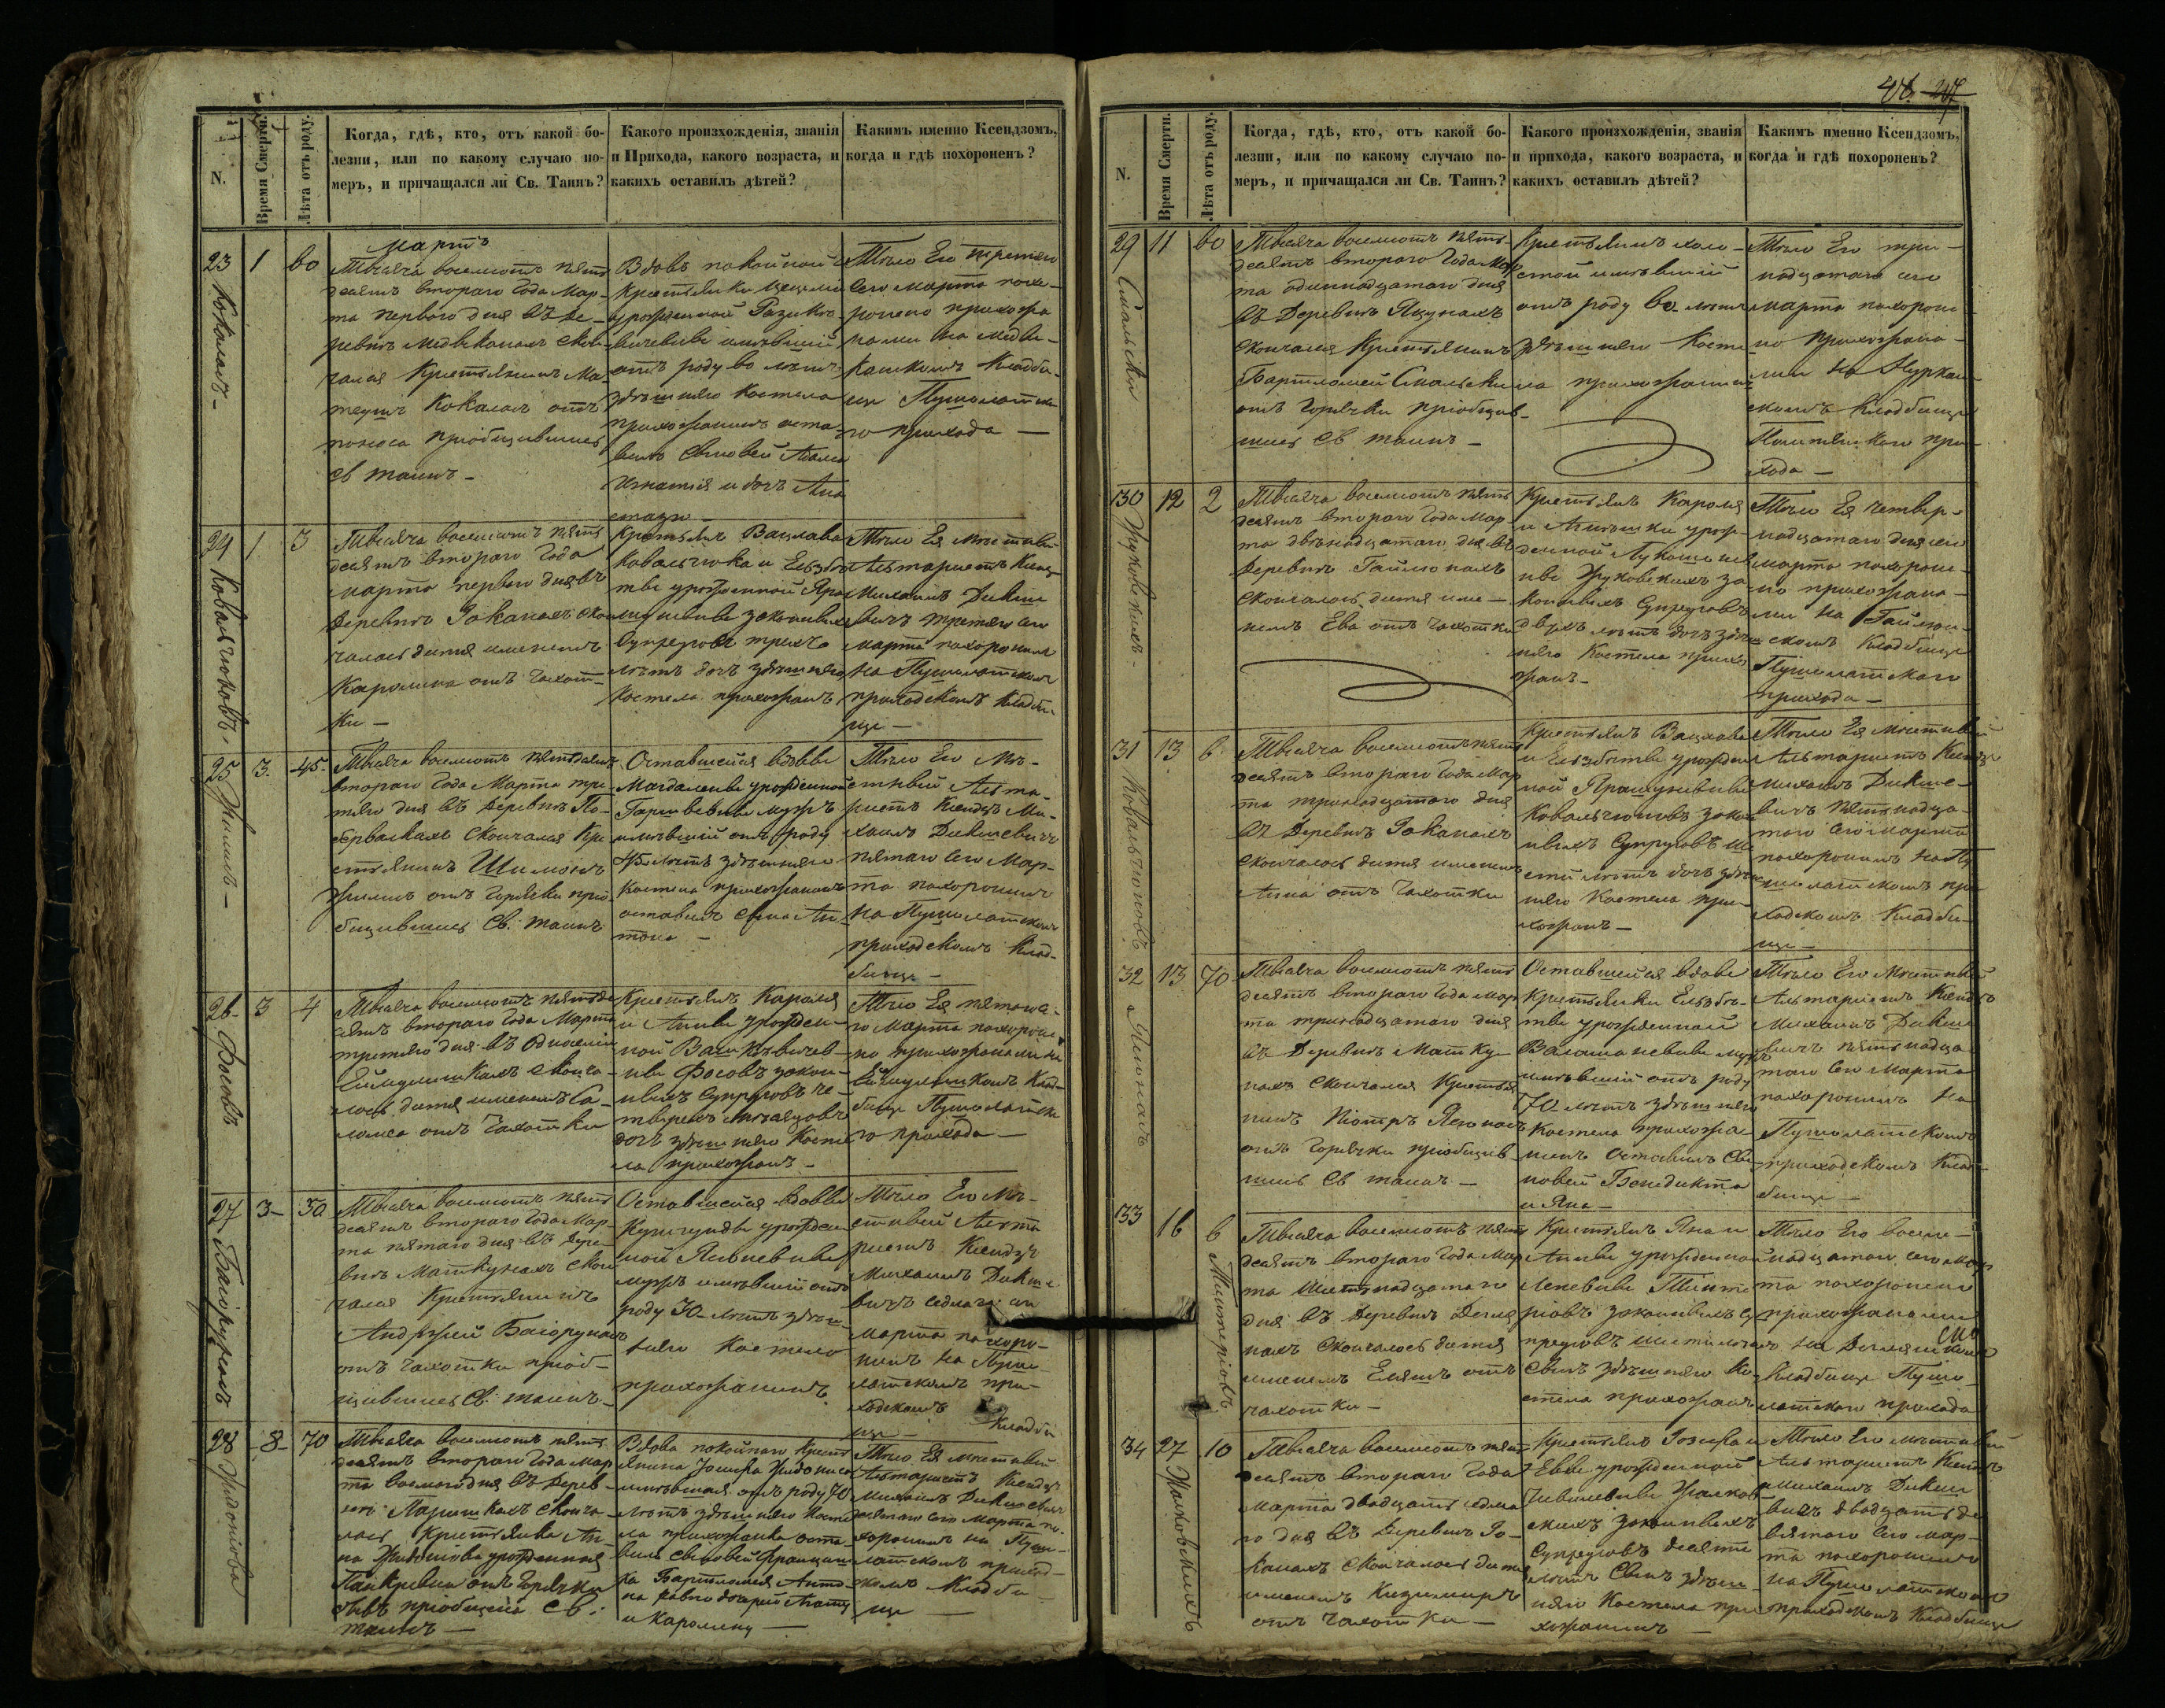 48 27
N.
Время Смерти.
Лѣта отъ роду.
Когда, гдѣ, кто, отъ какой бо-
лезни, или по какому случаю по-
меръ, и причащался ли Св. Таинъ?
Какого произхожденія, званія
и Прихода, какого возраста, и
какихъ оставилъ дѣтей?
Какимъ именно Ксендзомъ,
когда и гдѣ похороненъ?
Мартъ
23 1 60
Коколасъ
Тысяча восемсотъ пять
десятъ втораго Года Мар-
та перваго дня въ де-
ревнѣ скон-
чался Крестьянинъ Ма-
теушъ Коколасъ отъ
поноса пріобщившись
Св таинъ
Вдовъ покойной
Крестьянки
урожденной
имѣвшій
отъ роду 60 лѣтъ
здѣшняго Костела
прихожанинъ оста-
вилъ Сыновей Адама
Игнатія и дочь Ана
стазію
Тѣло Его третяго
сего марта похо-
ронено прихожа
нами на
Кладби-
ще Пушолатска
го прихода
24 1 3
Ковальчюковъ
Тысяча восемсотъ пять
десятъ втораго Года
марта перваго дня въ
Деревнѣ Іоканахъ скон
чалось дитя именемъ
Каролина отъ чахот-
ки
Крестьянъ Вацлава
Ковальчюка и Ельзбѣ
ты урожденной
законныхъ
Супруговъ трихъ
лѣтъ дочь здѣшняго
Костела прихожанъ
Тѣло Ея мѣстный
Альтаристъ Ксендзъ
Михаилъ Дикше
вичъ третяго сего
марта похоронилъ
на Пушолатскомъ
приходскомъ кладби-
ще
25 3 45
Жилисъ
Тысяча восемсотъ пятьдесятъ
втораго Года Марта тре
тяго дня въ деревнѣ По-
скончался Кре
стьянинъ Шимонъ
Жилисъ отъ Горячки прі
бщившись Св. таинъ
Оставшейся вдовы
Магдалены урожденной
мужъ
имѣвшій отъ роду
45 лѣтъ здѣшняго
Костела прихожанинъ
оставилъ сына Ан-
тона
Тѣло Его Мѣ-
стный Альта-
ристъ Ксендзъ Ми-
хаилъ Дикшевичъ
пятаго сего Мар-
та похоронилъ
на Пушолатскомъ
приходскомъ Клад-
бище
26 3 4
Фосовъ
Тысяча восемсотъ пятьде
сятъ втораго Года Марта
третяго дня въ Околицы
сконча-
лось дитя именемъ Са-
ломея отъ Чахотки
Крестьянъ Кароля
и Анны урожден-
ной
Фосовъ закон-
ныхъ Супруговъ че-
тырехъ мѣсяцовъ
дочь здѣшняго Косте
ла прихожанъ
Тѣло Ея пятаго се-
го Марта похороне-
но прихожанами на
Клад-
бище Пушолатска
го прихода
27 3 30
Баіорунасъ
Тысяча восемсотъ пять
десятъ втораго Года Мар-
та пятаго дня въ Дере-
внѣ Маткунахъ скон
чался Крестьянинъ
Андржей Баіорунасъ
отъ чахотки пріоб-
щившись Св. таинъ
Оставшейся вдовы
Кунегунды урожден
ной
мужъ имѣвшій отъ
роду 30 лѣтъ здѣш-
няго Костела
прихожанинъ
Тѣло Его Мѣ-
стный Альта
ристъ Ксендзъ
Михаилъ Дикше-
вичъ седмаго сего
марта похоро-
нилъ на Пушо
латскомъ при-
ходскомъ Кладби
ще
28 8 70
Жидонова
Тысяча восемсотъ пять
десятъ втораго Года Мар
та восмаго дня въ дерев-
ни сконча-
лась Крестьянка Ан-
на урожденная
отъ Горячки
пріобщена Св.
таинъ
Вдова покойнаго Кресть
янина Іосифа
имѣвшая отъ роду 70
лѣтъ здѣшняго Косте
ла прихожанка оста-
вила сыновей Францишка
Бартломея Анто-
на равно дочерей Агату
и Каролину
Тѣло Ея мѣстный
Альтаристъ Ксендзъ
Михаилъ Дикшевичъ
десятаго сего Марта по-
хоронилъ на Пушо-
латскомъ приход-
скомъ Кладби
ще
N.
Время Смерти.
Лѣта отъ роду.
Когда, гдѣ, кто, отъ какой бо-
лезни, или по какому случаю по-
меръ, и причащался ли Св. Таинъ?
Какого произхожденія, званія
и прихода, какого возраста, и
какихъ оставилъ дѣтей?
Какимъ именно Ксендзомъ,
когда и гдѣ похороненъ?
29 11 60
Смальски
Тысяча восемсотъ пять-
десятъ втораго Года Мар
та одиннадцатаго дня
въ Деревнѣ
скончался Крестьянинъ
Бартломей Смальски
отъ Горячки пріобщив-
шись Св таинъ
Крестьянинъ холо-
стой имѣвшій
отъ роду 60 лѣтъ
здѣшняго Косте
ла прихожанинъ
Тѣло Его три-
надцатаго сего
марта похороне-
но прихожана-
ми на
скомъ Кладбище
при-
хода
30 12 2
Жуковскихъ
Тысяча восемсотъ пять
десятъ втораго Года Мар-
та двѣнадцатаго дня въ
Деревнѣ Гайлюнахъ
скончалось дитя име-
немъ Ева отъ чахотки
Крестьянъ Кароля
и урож-
денной
Жуковскихъ за
конныхъ Супруговъ
двухъ лѣтъ дочь здѣш
няго Костела прихо
жанъ
Тѣло Ея четвер-
надцатаго дня сего
марта похороне-
но прихожана-
ми на Гайлюн-
скомъ Кладбище
Пушолатскаго
прихода
31 13 6
Ковальчюковъ
Тысяча восемсотъ пять
десятъ втораго Года Мар
та тринадцатаго дня
въ Деревнѣ Іоканахъ
скончалось дитя именемъ
Анна отъ чахотки
Крестьянъ Вацлава
и Ельзбѣты урожден
ной
Ковальчюковъ закон
ныхъ Супруговъ ше
сти лѣтъ дочь здѣш
няго Костела при-
хожанъ
Тѣло Ея мѣстный
Альтаристъ Ксендзъ
Михаилъ Дикше-
вичъ пятьнадца-
таго сего марта
похоронилъ на Пу
шолатскомъ при
ходскомъ Кладби-
ще
32 13 70
Тысяча восемсотъ пять
десятъ втораго Года Мар
та тринадцатаго дня
въ Деревнѣ Матку-
нахъ скончался Крестья
нинъ Піотръ
отъ Горячки пріобщив-
шись Св таинъ
Оставшейся вдовы
Крестьянки Ельзбѣ-
ты урожденной
мужъ
имѣвшій отъ роду
70 лѣтъ здѣшняго
Костела прихожа-
нинъ оставилъ Сы-
новей Бенедикта
и Яна
Тѣло Его Мѣстный
Альтаристъ Ксендзъ
Михаилъ Дикше
вичъ пятьнадца
таго сего Марта
похоронилъ на
Пушолатскомъ
приходскомъ Клад-
бище
33 16 6
Тысяча восемсотъ пять
десятъ втораго Года Мар
та шестьнадцатаго
дня въ Деревнѣ
скончалось дитя
именемъ отъ
чахотки
Крестьянъ Яна и
Анны урожденной
законныхъ Су
пруговъ шести лѣтъ
сынъ здѣшняго Ко-
стела прихожанъ
Тѣло Его восем-
надцатаго сего Мар
та похоронено
прихожанами
на
Кладбище Пушо-
латскаго прихода
34 27 10
Жалковскихъ
Тысяча восемсотъ пять
десятъ втораго Года
Марта двадцать седма
го дня въ Деревнѣ Іо-
канахъ скончалось дитя
именемъ Казимиръ
отъ чахотки
Крестьянъ Іозефа и
Евы урожденной
законныхъ
Супруговъ десяти
лѣтъ Сынъ здѣш-
няго Костела при
хожанинъ
Тѣло Его мѣстный
Альтаристъ Ксендзъ
Михаилъ Дикше
вичъ двадцать де
вятаго сего мар-
та похоронилъ
на Пушолатскомъ
приходскомъ Кладбище